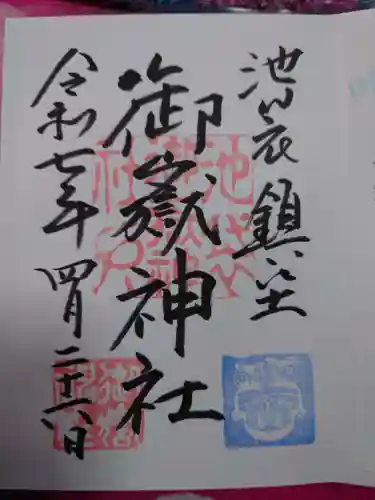 池袋鎮座
御嶽神社
令和七年四月二十六日